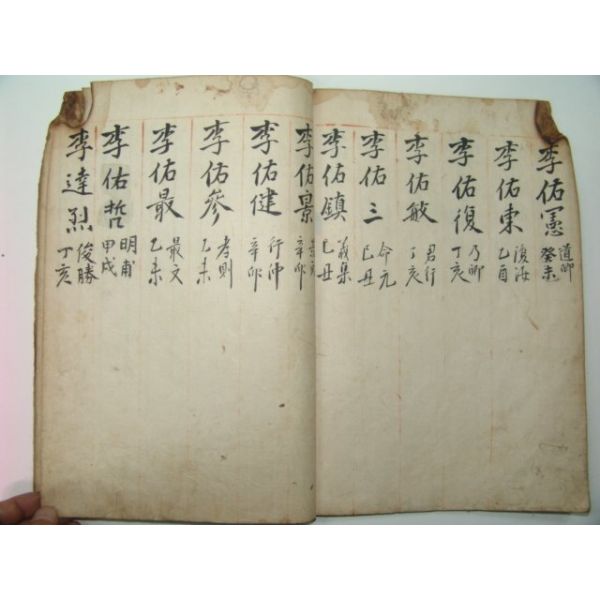 李佑憲 道卿 癸未
李佑東 復汝 乙酉
李佑復 乃卿 丁亥
李佑敏 君行 丁亥
李佑三 命元 己丑
李佑鎮 義集 己丑
李佑景 辛卯
李佑健 行仲 辛卯
李佑參 孝則 乙未
李佑最 最文 乙未
李佑哲 明甫 甲戌
李達烈 俊勝 丁亥